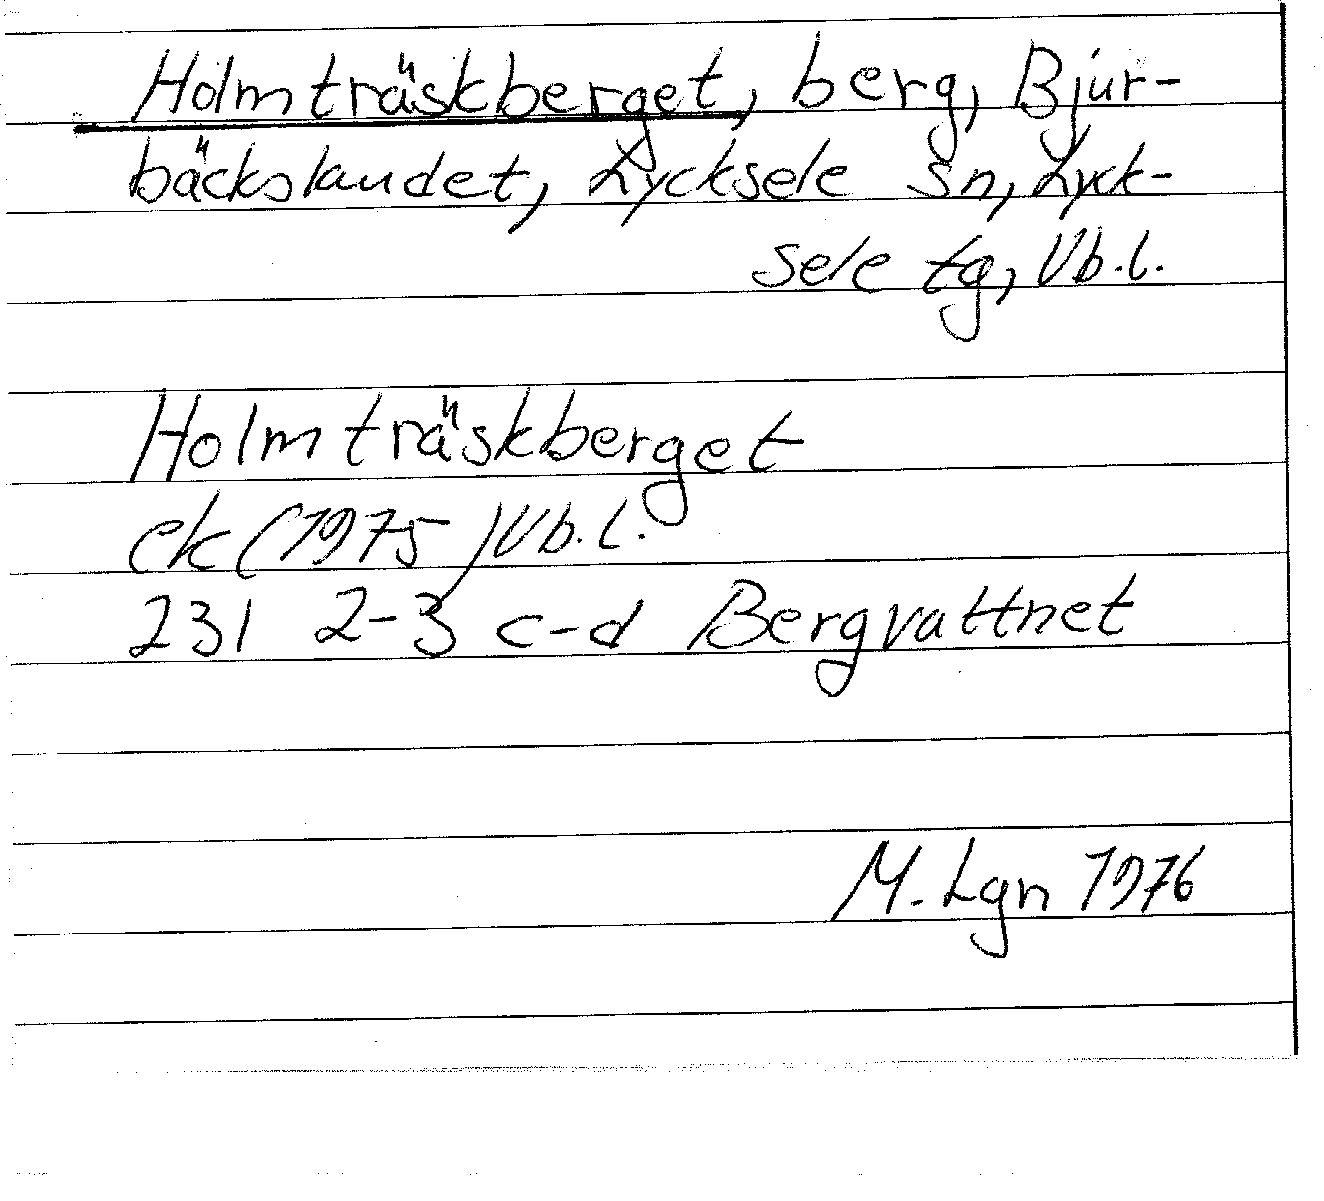 Holmträskberget, berg, Bjur-
bäckslandet, Lycksele sn, Lyck-
sele tg, Vb.l.
Holmträskberget
ek (1975) Vb.l.
23I 2-3 c-d Bergvattnet
M. Lgn 1976